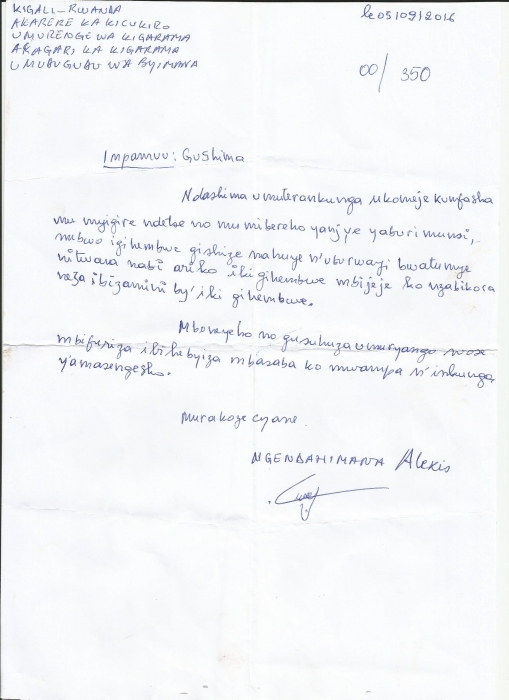 KIGALI-RWANDA
AKARERE KA KICUKIRO
UMURENGE WA KIGARAMA
AKAGARI KA KIGARAMA
UMUDUGUDU WA BYIMANA
le 05/09/2016
00/350
Impamvu: Gushima
Ndashima umuterankunga ukomeje kunfasha
mu myigire ndetse no mu mibereho yanjye yaburi munsi,
nubwo igihembwe gishize nahuye n'uburwayi bwatumye
nitwara nabi ariko iki gihembwe mbijeje ko nzabikora
neza ibizamini by'iki gihembwe.
Mboneyeho no gusuhuza umuryango wose
mbifuriza ibihe byiza mbasaba ko mwampa n'inkunga
y'amasengesho.
Murakoze cyane.
NGENDAHIMANA Alexis